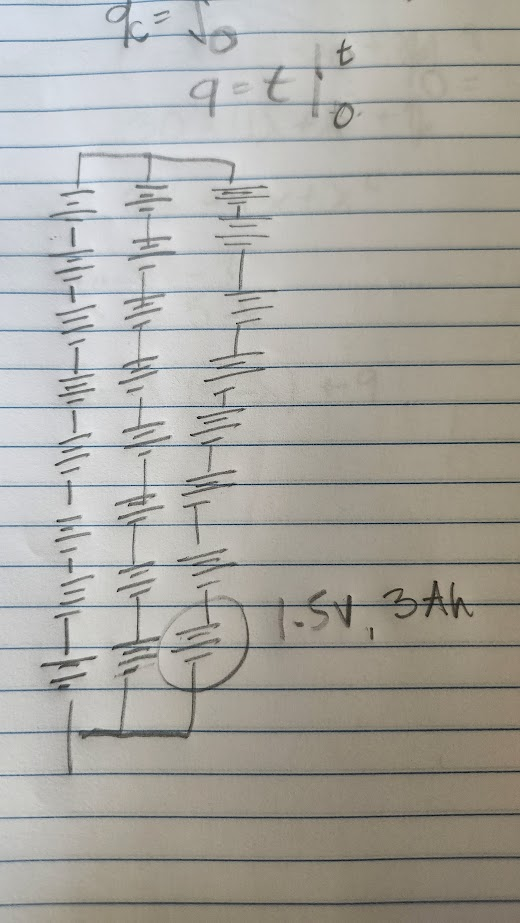 qc = ∫0
q = t |t0
1.5V, 3Ah